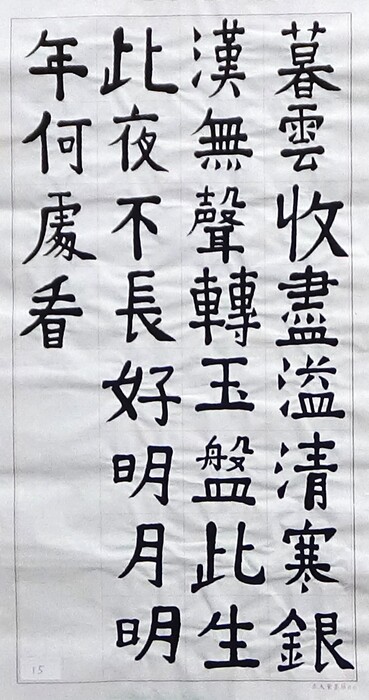 暮雲收盡溢清寒銀
漢無聲轉玉盤此生
此夜不長好明月明
年何處看
15